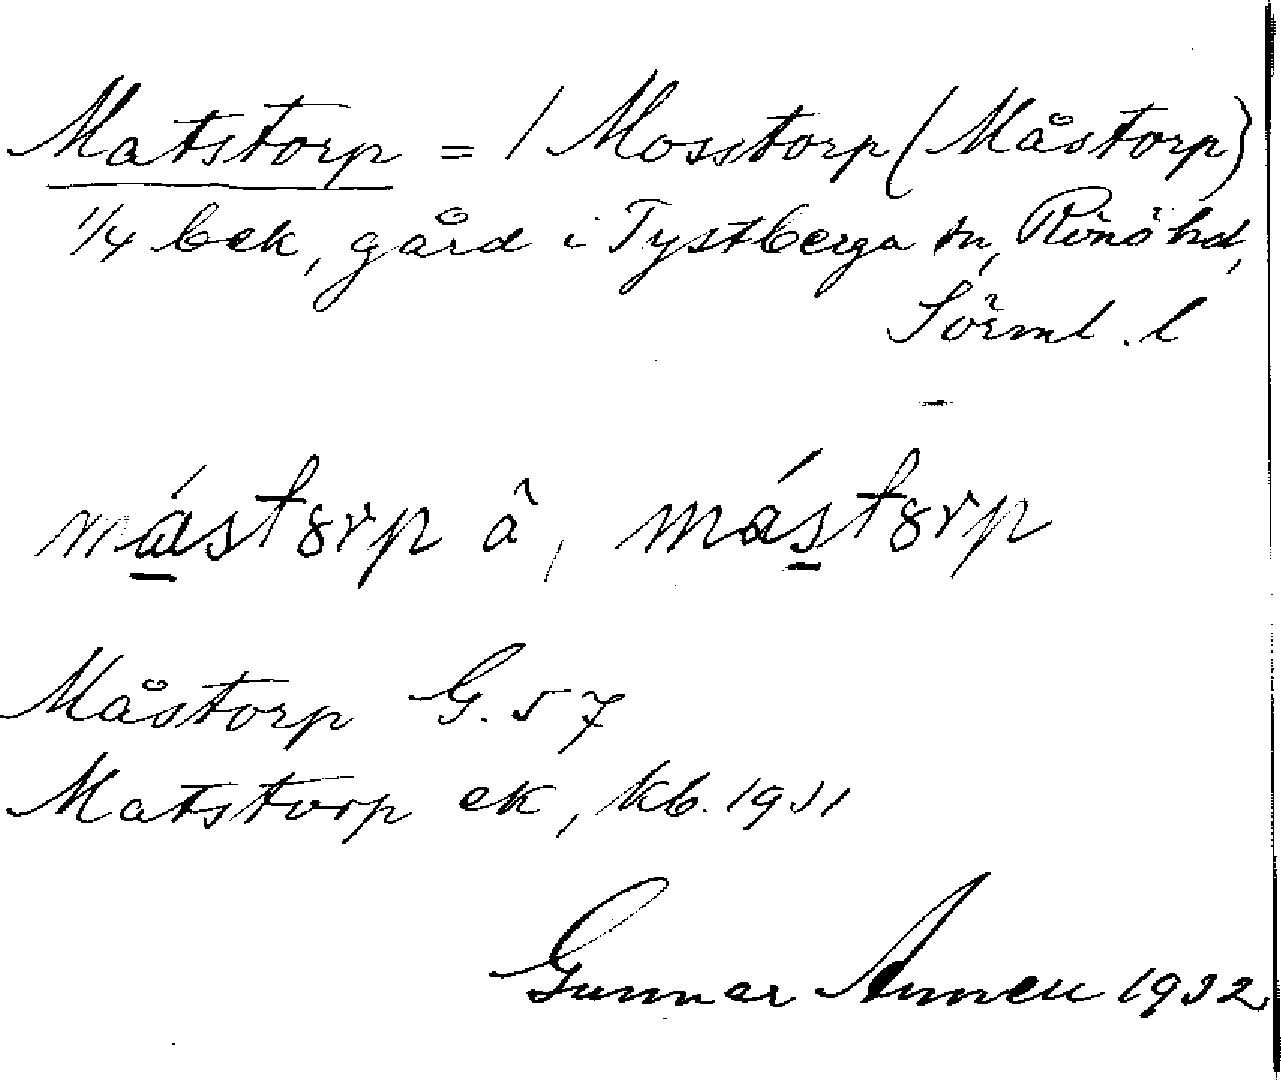 Matstorp = / Mosstorp (Måstorp)
1/4 bek, gård i Tystberga sn, Rönö hd,
Sörml. l
måstorp â, måstorp
Måstorp G. 57
Matstorp ek, kb. 1931
Gunnar Annell 1932